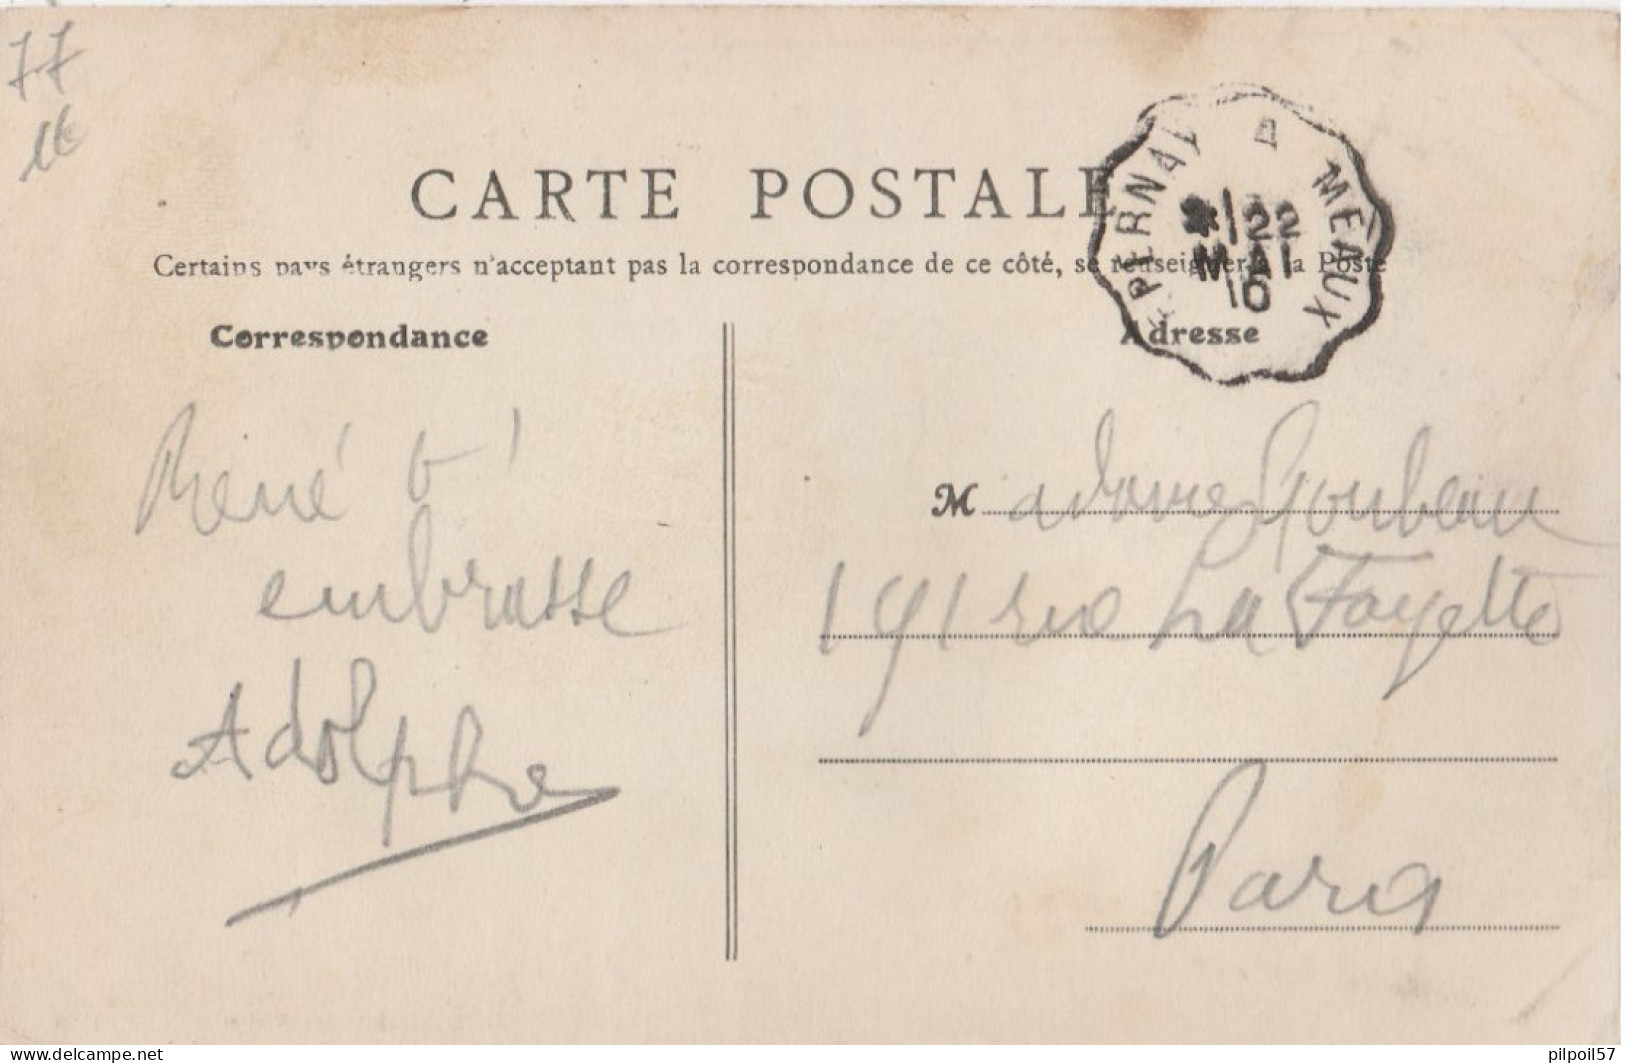 77
1€
CARTE POSTALE
Certains pays étrangers n'acceptant pas la correspondance de ce côté, se renseigner à la Poste
EPERNAY A MEAUX
22
MAI
10
Correspondance
Adresse
René t'
embrasse
Adolphe
Madame Goubeau
191 rue La Fayette
Paris
www.delcampe.net
pilpoil57